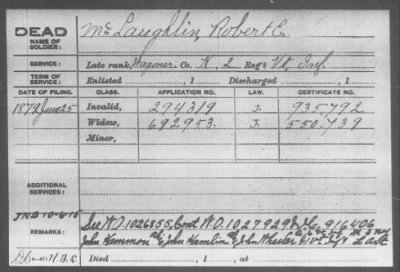 DEAD
NAME OF SOLDIER:
McLaughlin, Robert E.
SERVICE:
Late rank, Wagoner. Co. K, 2 Reg't Vt. Inf.
TERM OF SERVICE:
Enlisted , 1 Discharged , 1
DATE OF FILING. CLASS. APPLICATION NO. LAW. CERTIFICATE NO.
1879 June 25 Invalid, 294319 J. 935792
Widow, 692953. J. 550.739
Minor,
ADDITIONAL SERVICES:
REMARKS:
See W.O. 1026855, Cont W.O. 1027929 916406
John Hammon John Hamlin John Wheeler
Died , 1